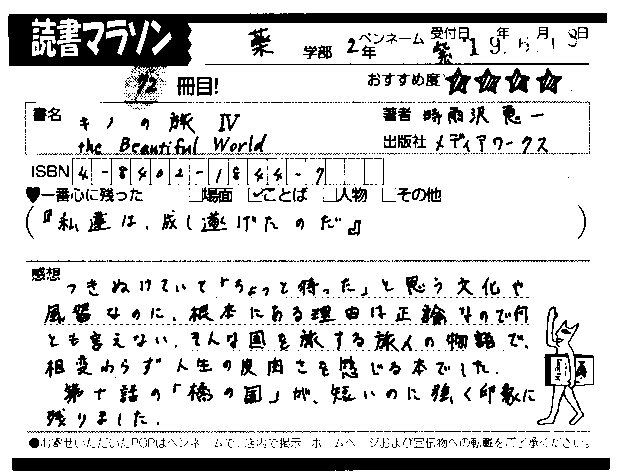 読書マラソン
薬 学部 2年 ペンネーム 紫 受付日 19年 6月 19日
72 冊目! おすすめ度 ☆☆☆☆
書名 キノの旅 Ⅳ 著者 時雨沢恵一
the Beautiful World 出版社 メディアワークス
ISBN 4-8402-1844-7
♥一番心に残った □場面 ☑ことば □人物 □その他
(『私達は、成し遂げたのだ』)
感想
つきぬけていて「ちょっと待った」と思う文化や
風習なのに、根本にある理由は正論なので何
とも言えない、そんな国を旅する旅人の物語で、
相変わらず人生の皮肉さを感じる本でした。
第十話の「橋の国」が、短いのに強く印象に
残りました。
●お寄せいただいたPOPはペンネームで、店内で掲示、ホームページおよび宣伝物への転載をご了承ください。